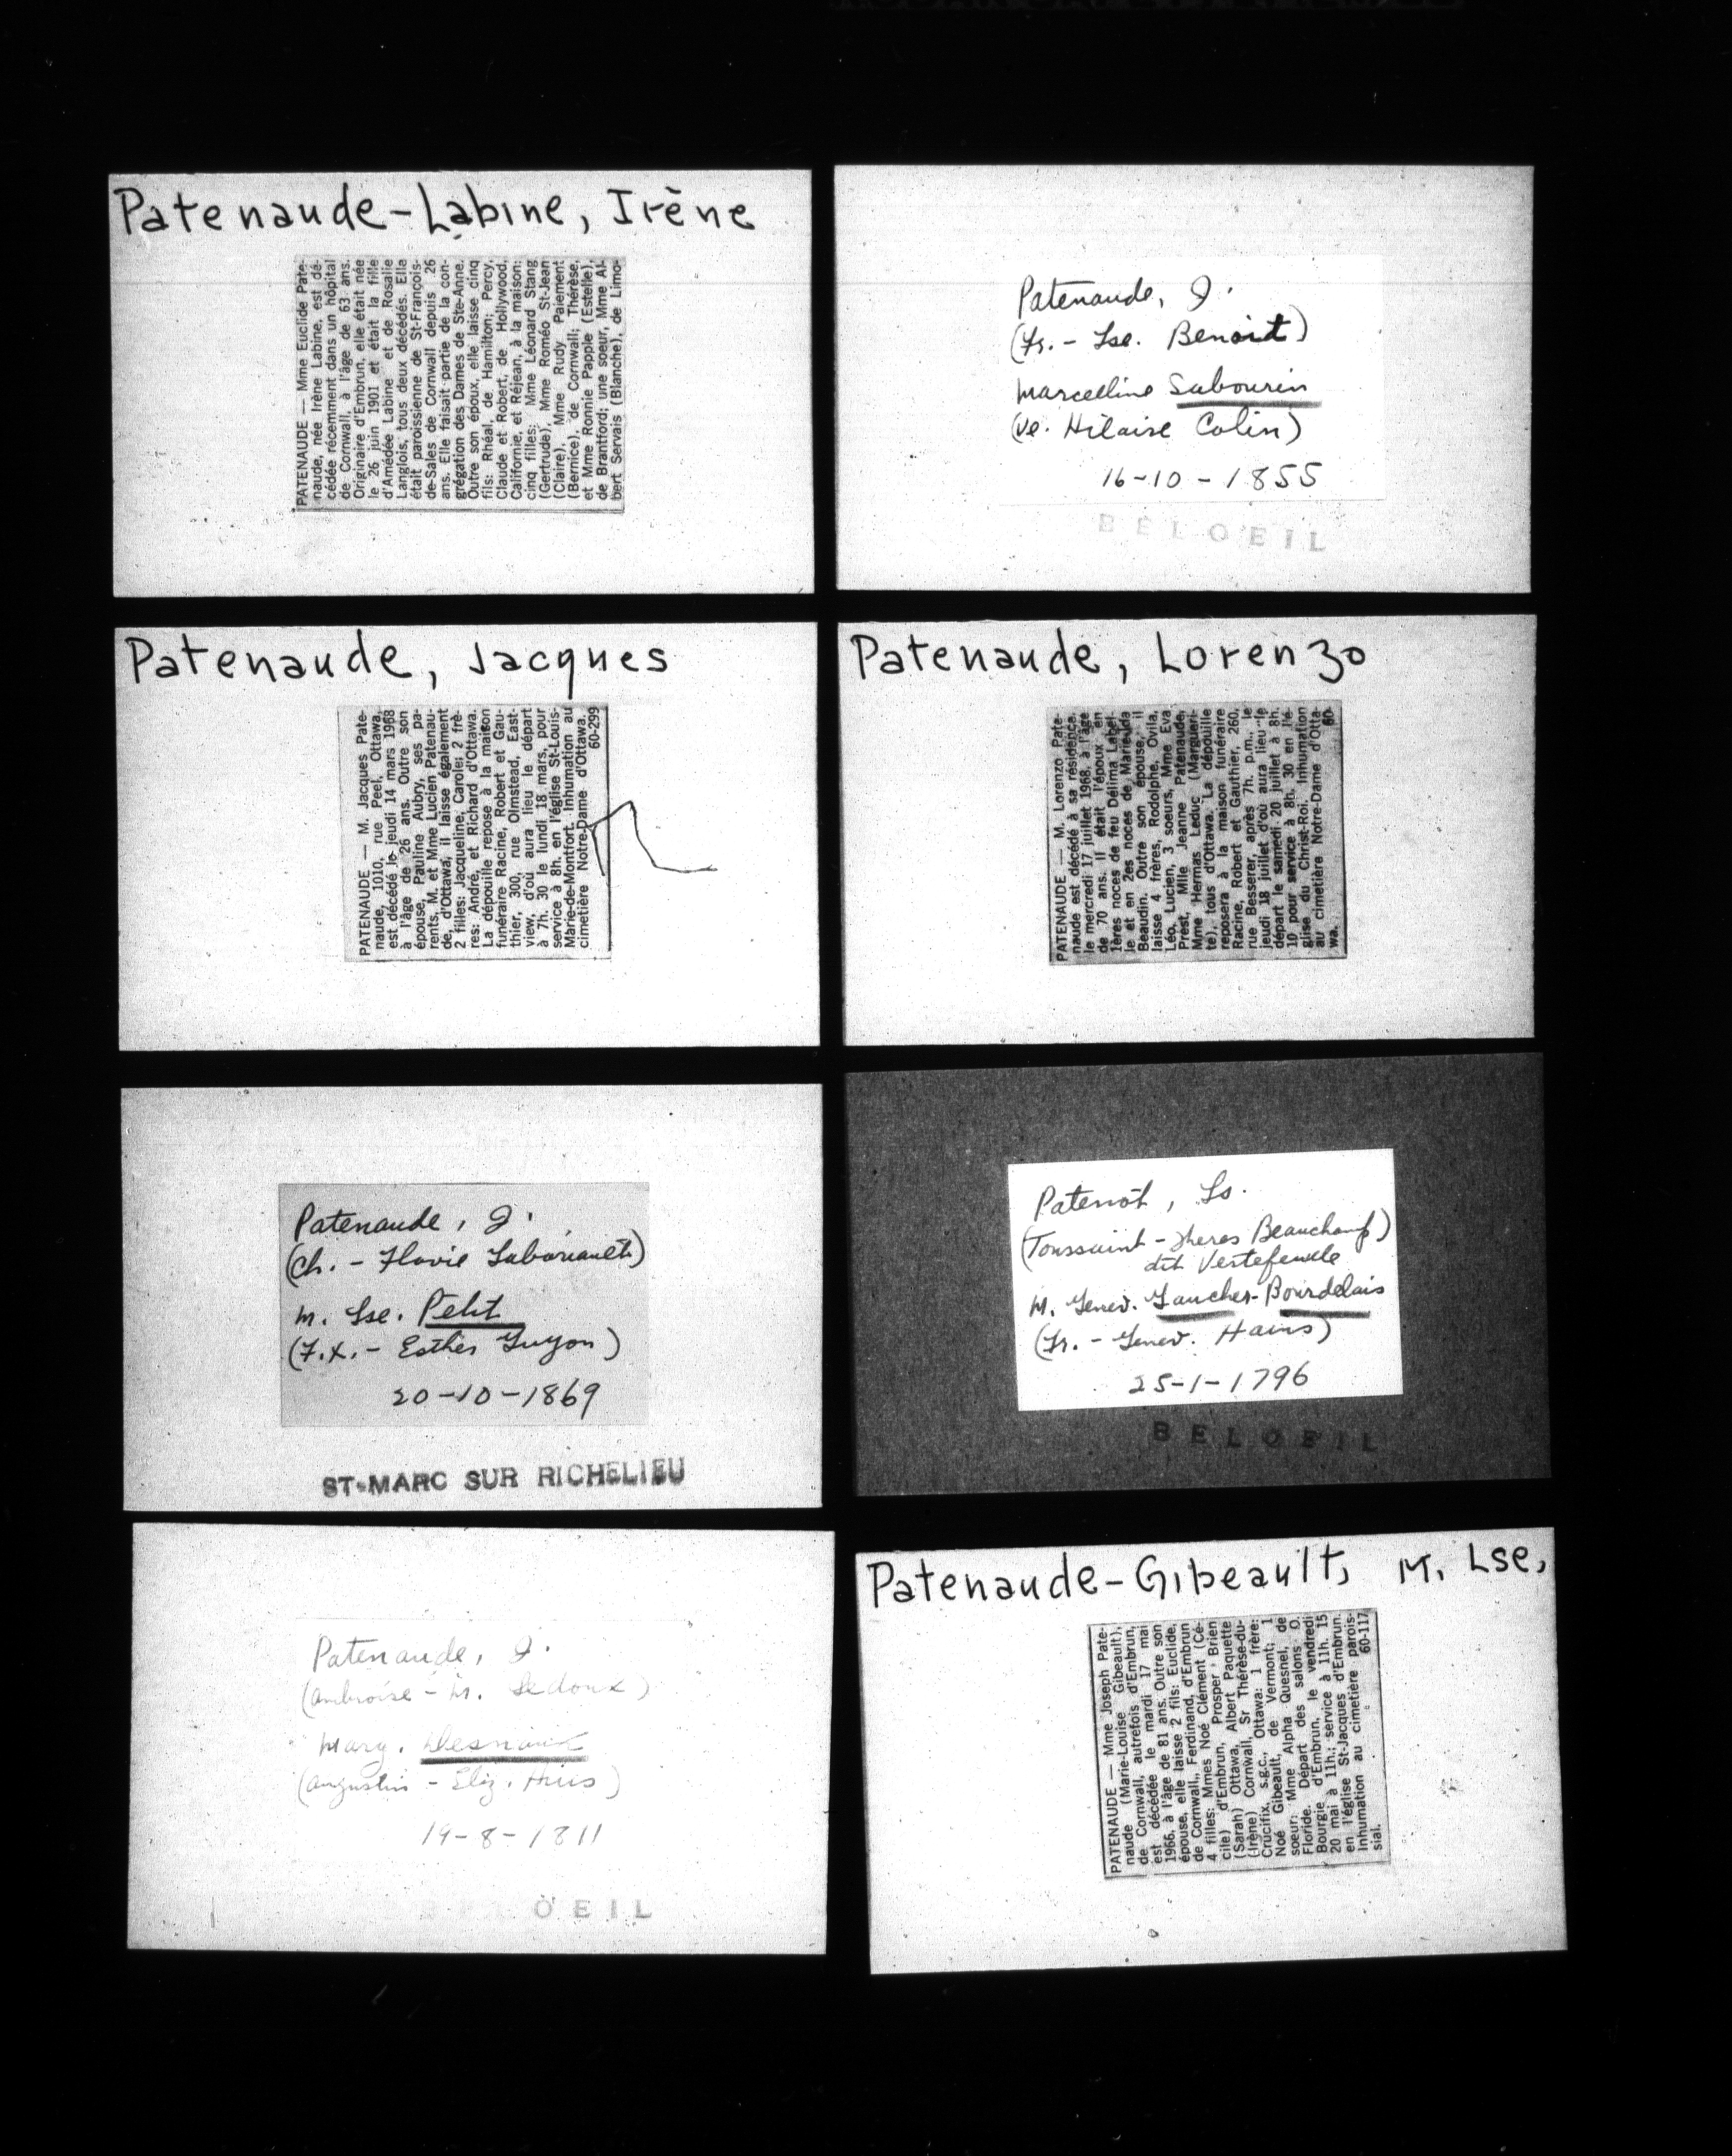 Patenaude-Labine, Irène
PATENAUDE — Mme Euclide Pate-
naude, née Irène Labine, est dé-
cédée récemment dans un hôpital
de Cornwall, à l'âge de 63 ans.
Originaire d'Embrun, elle était née
le 26 juin 1901 et était la fille
d'Amédée Labine et de Rosalie
Langlois, tous deux décédés. Elle
était paroissienne de St-François-
de-Sales de Cornwall depuis 26
ans. Elle faisait partie de la con-
grégation des Dames de Ste-Anne.
Outre son époux, elle laisse cinq
fils: Rhéal, de Hamilton; Percy,
Claude et Robert, de Hollywood,
Californie, et Réjean, à la maison;
cinq filles: Mme Léonard Stang
(Gertrude), Mme Roméo St-Jean
(Claire), Mme Rudy Paiement
(Bernice), de Cornwall; Thérèse,
et Mme Ronnie Papple (Estelle),
de Brantford; une soeur, Mme Al-
bert Servais (Blanche), de Limo-
Patenaude, J.
(Fr. - Lse. Benoit)
Marcelline Sabourin
(ve. Hilaire Colin)
16-10-1855
BELOEIL
Patenaude, Jacques
PATENAUDE — M. Jacques Pate-
naude, 1010, rue Peel, Ottawa,
est décédé le jeudi 14 mars 1968
à l'âge de 26 ans. Outre son
épouse, Pauline Aubry, ses pa-
rents, M. et Mme Lucien Patenau-
de, d'Ottawa, il laisse également
2 filles: Jacqueline, Carole; 2 frè-
res: André, et Richard d'Ottawa.
La dépouille repose à la maison
funéraire Racine, Robert et Gau-
thier, 300, rue Olmstead, East-
view, d'où aura lieu le départ
à 7h. 30 le lundi 18 mars, pour
service à 8h. en l'église St-Louis-
Marie-de-Montfort. Inhumation au
cimetière Notre-Dame d'Ottawa.
60-299
Patenaude, Lorenzo
PATENAUDE — M. Lorenzo Pate-
naude est décédé à sa résidence,
le mercredi 17 juillet 1968, à l'âge
de 70 ans. Il était l'époux en
1ères noces de feu Délima Label-
le et en 2es noces de Marie-Ida
Beaudin. Outre son épouse, il
laisse 4 frères, Rodolphe, Ovila,
Léo, Lucien, 3 soeurs, Mme Eva
Prest, Mlle Jeanne Patenaude,
Mme Hermas Leduc (Margueri-
te), tous d'Ottawa. La dépouille
reposera à la maison funéraire
Racine, Robert et Gauthier, 260,
rue Besserer, après 7h. p.m., le
jeudi 18 juillet d'où aura lieu le
départ le samedi 20 juillet à 8h.
10 pour service à 8h. 30 en l'é-
glise du Christ-Roi. Inhumation
au cimetière Notre-Dame d'Otta-
wa. 60-
Patenaude, J.
(Ch. - Flavie Labonauté)
M. Lse. Petit
(F.X. - Esther Guyon)
20-10-1869
ST-MARC SUR RICHELIEU
Patenot, Ls.
(Toussaint - Theres Beauchamp)
dit Vertefeuille
M. Genev. Gaucher-Bourdelais
(Fr. - Genev. Hains)
25-1-1796
BELOEIL
Patenaude, J.
(Ambroise - M. Ledoux)
Marg.
(Augustin - Eliz.
19-8-1811
BELOEIL
Patenaude-Gibeault, M. Lse,
PATENAUDE — Mme Joseph Pate-
naude (Marie-Louise Gibeault),
de Cornwall, autrefois d'Embrun,
est décédée le mardi 17 mai
1966, à l'âge de 81 ans. Outre son
épouse, elle laisse 2 fils: Euclide,
de Cornwall, Ferdinand, d'Embrun
4 filles: Mmes Noé Clément (Cé-
cile) d'Embrun, Prosper Brien
(Sarah) Ottawa, Albert Paquette
(Irène) Cornwall, Sr Thérèse-du-
Crucifix, s.g.c., Ottawa: 1 frère:
Noé Gibeault, de Vermont; 1
soeur: Mme Alpha Quesnel, de
Floride. Départ des salons O.
Bourgie d'Embrun, le vendredi
20 mai à 11h.; service à 11h. 15
en l'église St-Jacques d'Embrun.
Inhumation au cimetière parois-
sial. 60-117